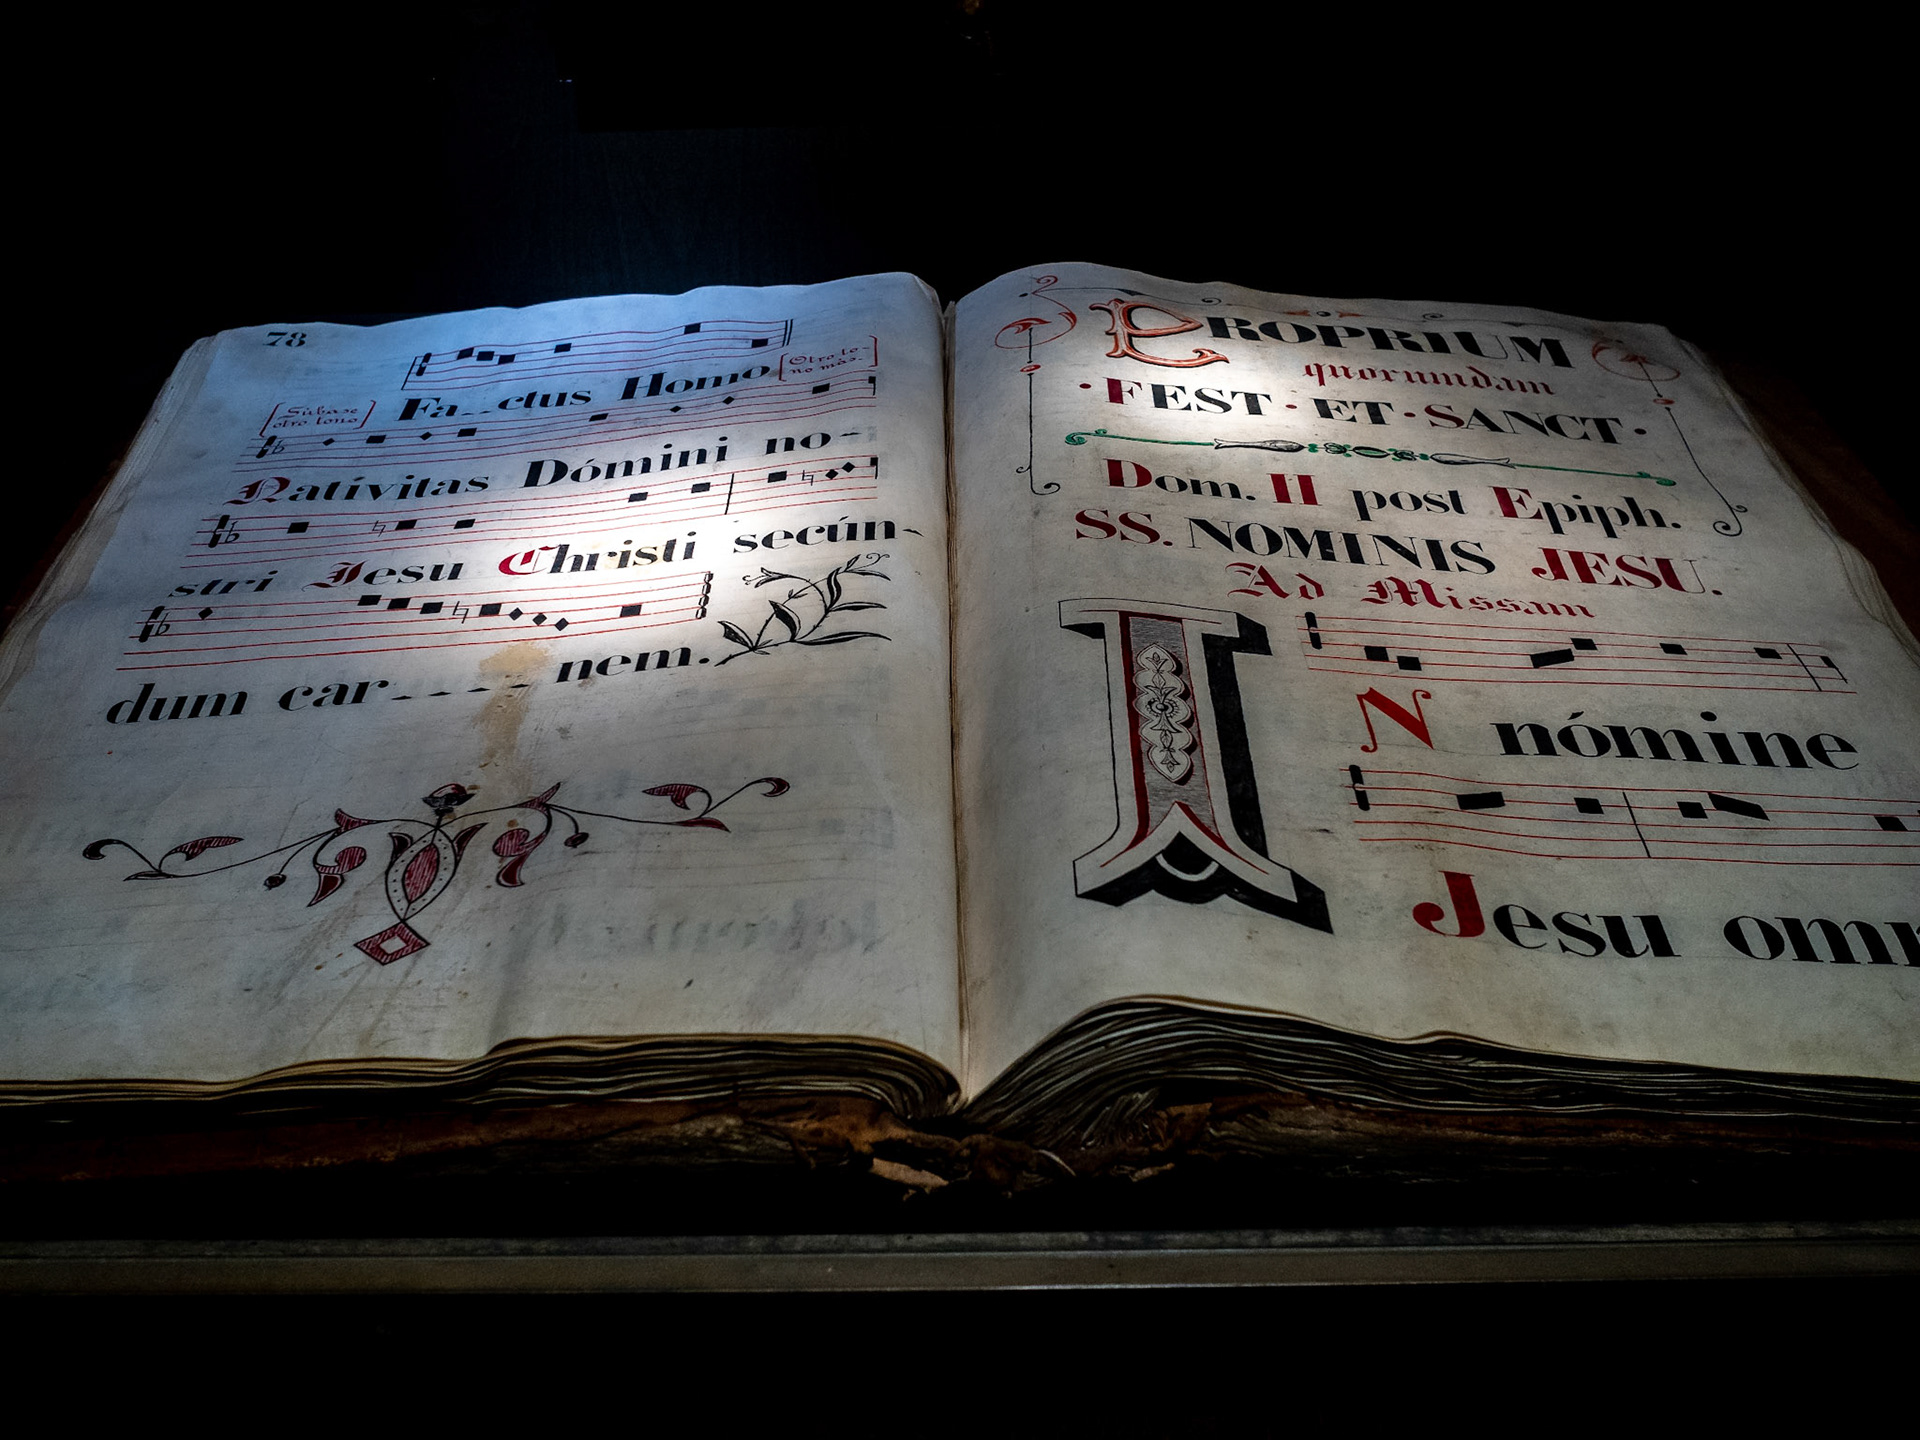 78
Fa__ctus Homo [Otro to-
no mas.]
[Súbase
otro tono]
Nativitas Dómini no-
stri Jesu Christi secún-
dum car_____nem.
PROPRIUM
quorumdam
·FEST·ET·SANCT·
Dom. II post Epiph.
SS. NOMINIS JESU.
Ad Missam
IN nómine
Jesu omn